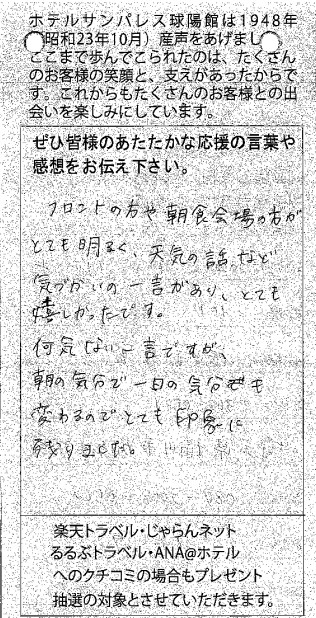 ホテルサンパレス球陽館は1948年
(昭和23年10月）産声をあげまし
ここまで歩んでこられたのは、たくさん
のお客様の笑顔と、支えがあったからで
す。これからもたくさんのお客様との出
会いを楽しみにしています。
ぜひ皆様のあたたかな応援の言葉や
感想をお伝え下さい。
フロントの方や朝食会場の方が
とても明るく、天気の話など
気づかいの一言があり、とても
嬉しかったです。
何気ない一言ですが、
朝の気分で一日の気分も
変わるのでとても印象に
残りました。
楽天トラベル・じゃらんネット
るるぶトラベル・ANA@ホテル
へのクチコミの場合もプレゼント
抽選の対象とさせていただきます。